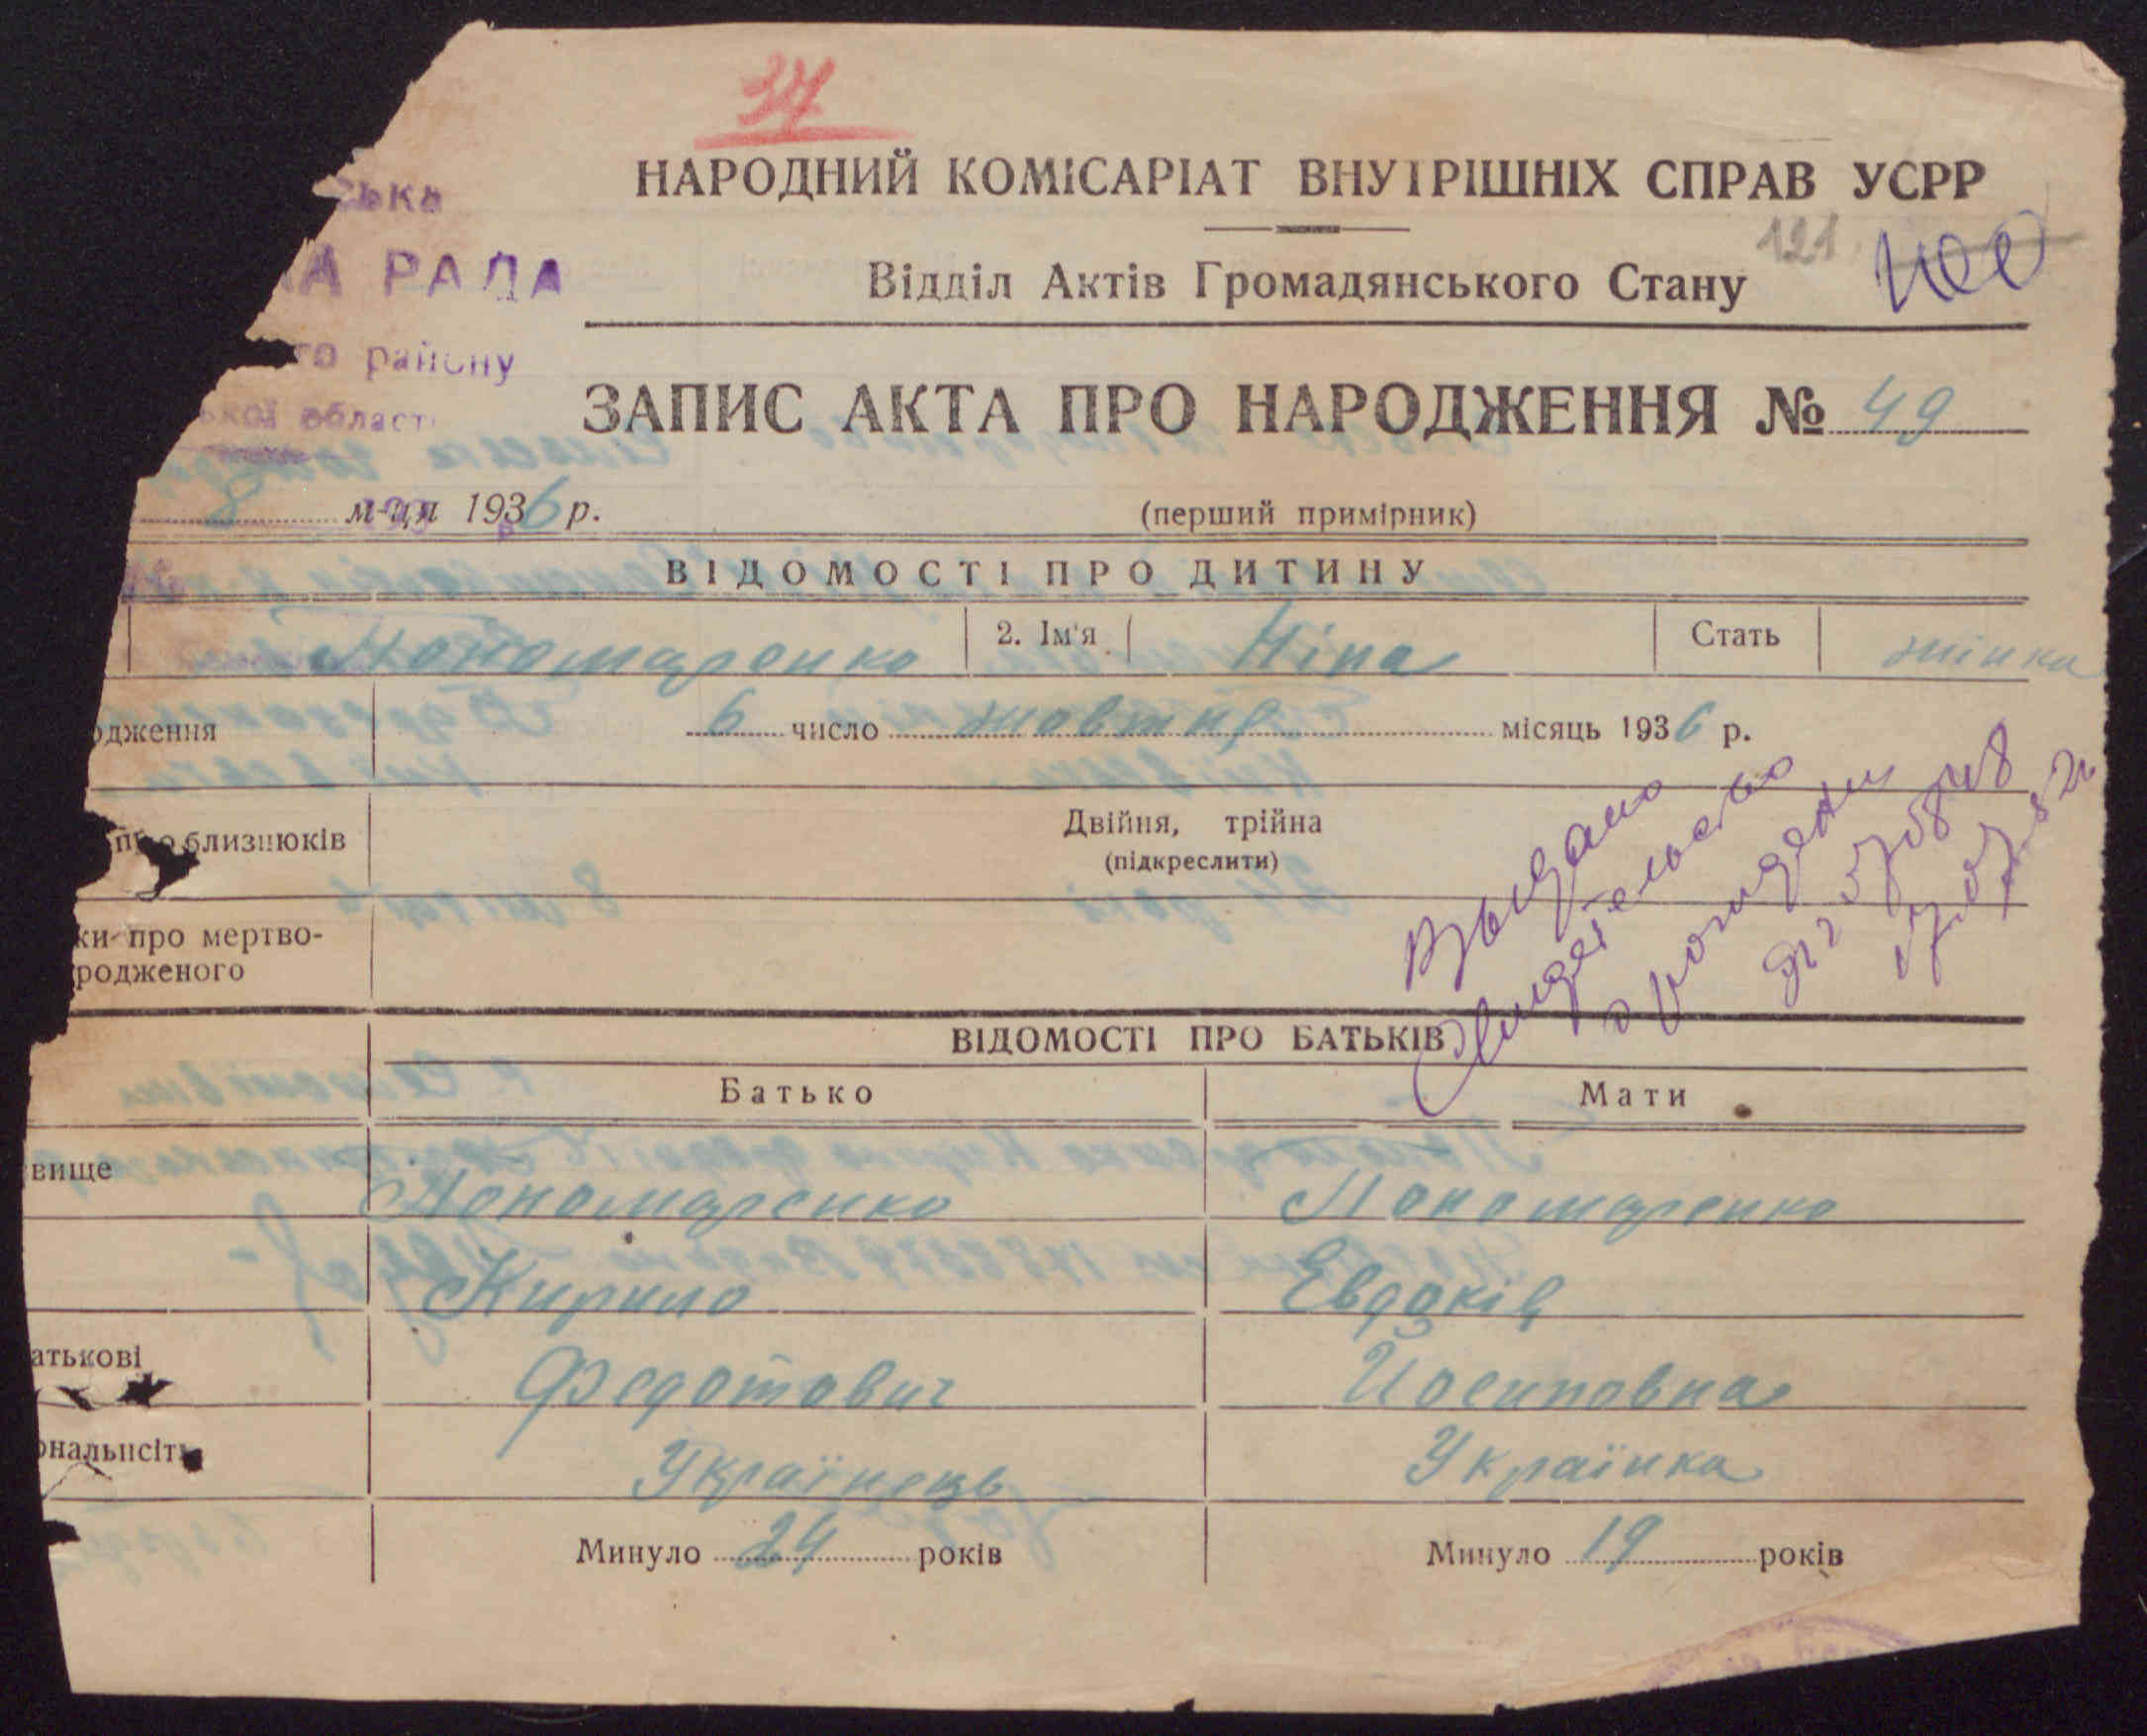 37
НАРОДНИЙ КОМІСАРІАТ ВНУТРІШНІХ СПРАВ УСРР
ська
НА РАДА
го району
ської області
121
Відділ Актів Громадянського Стану
ЗАПИС АКТА ПРО НАРОДЖЕННЯ № 49
8 м-ця 1936 р.
(перший примірник)
ВІДОМОСТІ ПРО ДИТИНУ
Пономаренко 2. Ім'я Ніна Стать жінка
одження 6 число жовтня місяць 1936 р.
про близнюків Двійня, трійна
(підкреслити)
ки про мертво-
родженого
Выдано
свидетельство
о рождении
ВІДОМОСТІ ПРО БАТЬКІВ
Батько Мати
вище Пономаренко Пономаренко
Кирило Евдокія
атькові Федотович Йосиповна
ональнсіть Українець Українка
Минуло 24 років Минуло 19 років